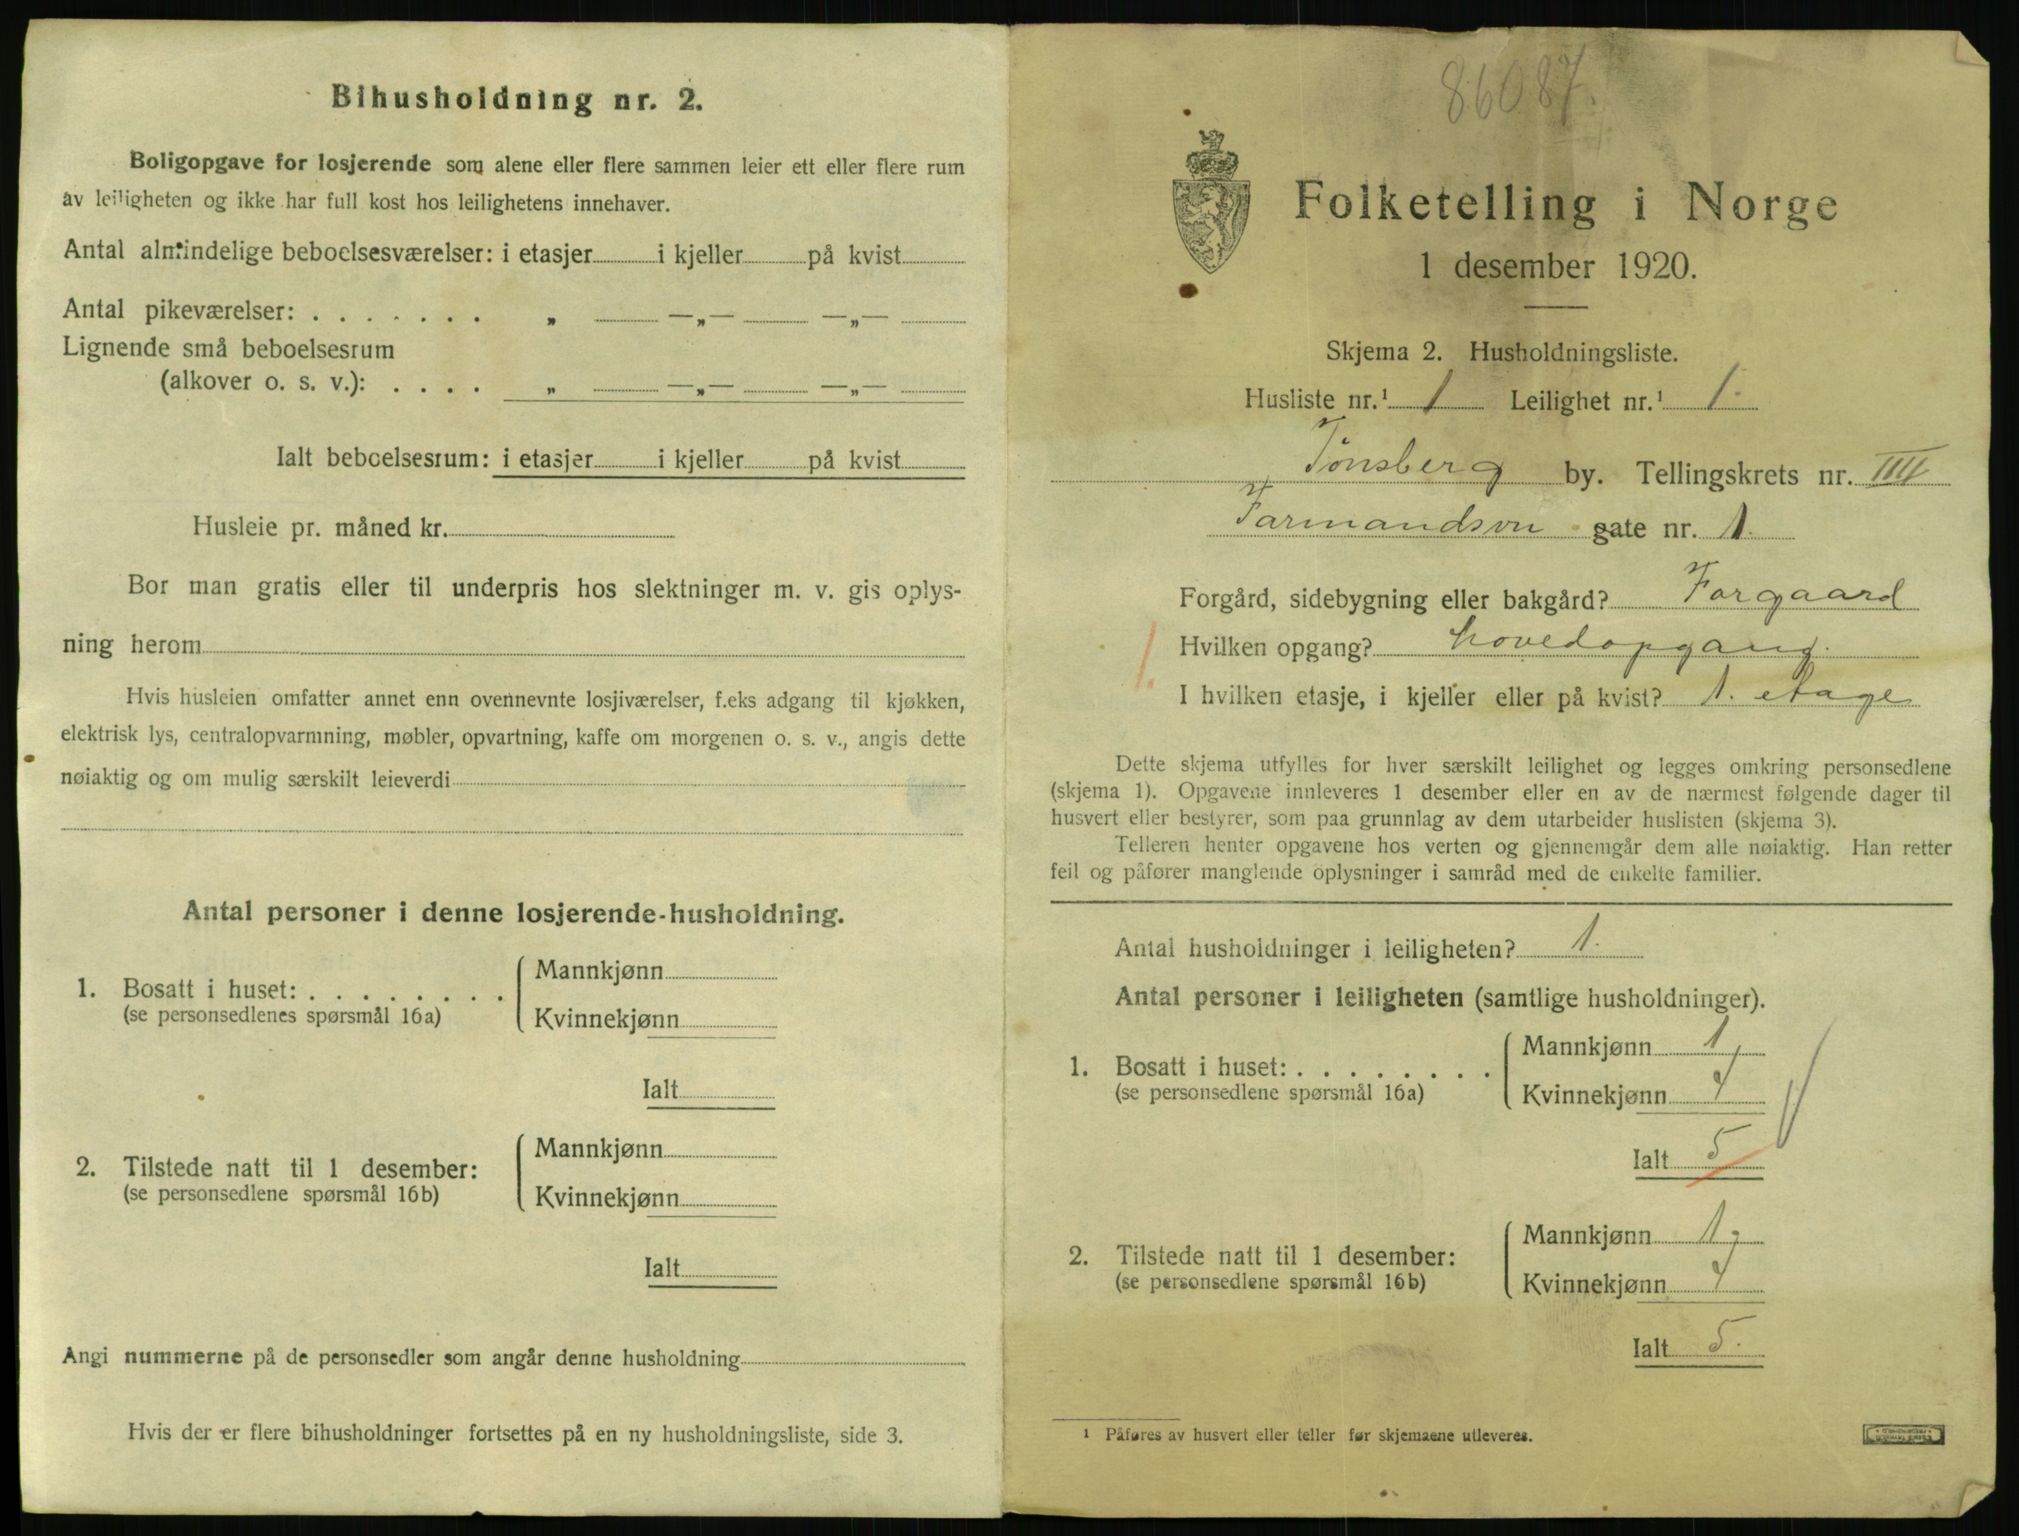 Bihusholdning nr. 2.
Boligopgave for losjerende som alene eller flere sammen leier ett eller flere rum
av leiligheten og ikke har full kost hos leilighetens innehaver.
Antal almindelige beboelsesværelser: i etasjer i kjeller på kvist
Antal pikeværelser: . . . . . . . „ —„— —„—
Lignende små beboelsesrum
(alkover o. s. v.): . . . . „ —„— —„—
Ialt beboelsesrum: i etasjer i kjeller på kvist
Husleie pr. måned kr.
Bor man gratis eller til underpris hos slektninger m. v. gis oplys-
ning herom
Hvis husleien omfatter annet enn ovennevnte losjiværelser, f.eks adgang til kjøkken,
elektrisk lys, centralopvarmning, møbler, opvartning, kaffe om morgenen o. s. v., angis dette
nøiaktig og om mulig særskilt leieverdi
Antal personer i denne losjerende-husholdning.
1. Bosatt i huset: . . . . . . . .
(se personsedlenes spørsmål 16a)
Mannkjønn
Kvinnekjønn
Ialt
2. Tilstede natt til 1 desember:
(se personsedlene spørsmål 16b)
Mannkjønn
Kvinnekjønn
Ialt
Angi nummerne på de personsedler som angår denne husholdning
Hvis der er flere bihusholdninger fortsettes på en ny husholdningsliste, side 3.
86087.
Folketelling i Norge
1 desember 1920.
Skjema 2. Husholdningsliste.
Husliste nr.¹ 1 Leilighet nr.¹ 1.
Tønsberg by. Tellingskrets nr. IIII
Farmandsvn gate nr. 1.
Forgård, sidebygning eller bakgård? Forgaard
1. Hvilken opgang? hovedopgang.
I hvilken etasje, i kjeller eller på kvist? 1. etage
Dette skjema utfylles for hver særskilt leilighet og legges omkring personsedlene
(skjema 1). Opgavene innleveres 1 desember eller en av de nærmest følgende dager til
husvert eller bestyrer, som paa grunnlag av dem utarbeider huslisten (skjema 3).
Telleren henter opgavene hos verten og gjennemgår dem alle nøiaktig. Han retter
feil og påfører manglende oplysninger i samråd med de enkelte familier.
Antal husholdninger i leiligheten? 1.
Antal personer i leiligheten (samtlige husholdninger).
1. Bosatt i huset: . . . . . . . .
(se personsedlene spørsmål 16a)
Mannkjønn 1
Kvinnekjønn 4
Ialt 5
2. Tilstede natt til 1 desember:
(se personsedlene spørsmål 16b)
Mannkjønn 1
Kvinnekjønn 4
Ialt 5.
¹ Påføres av husvert eller teller før skjemaene utleveres.